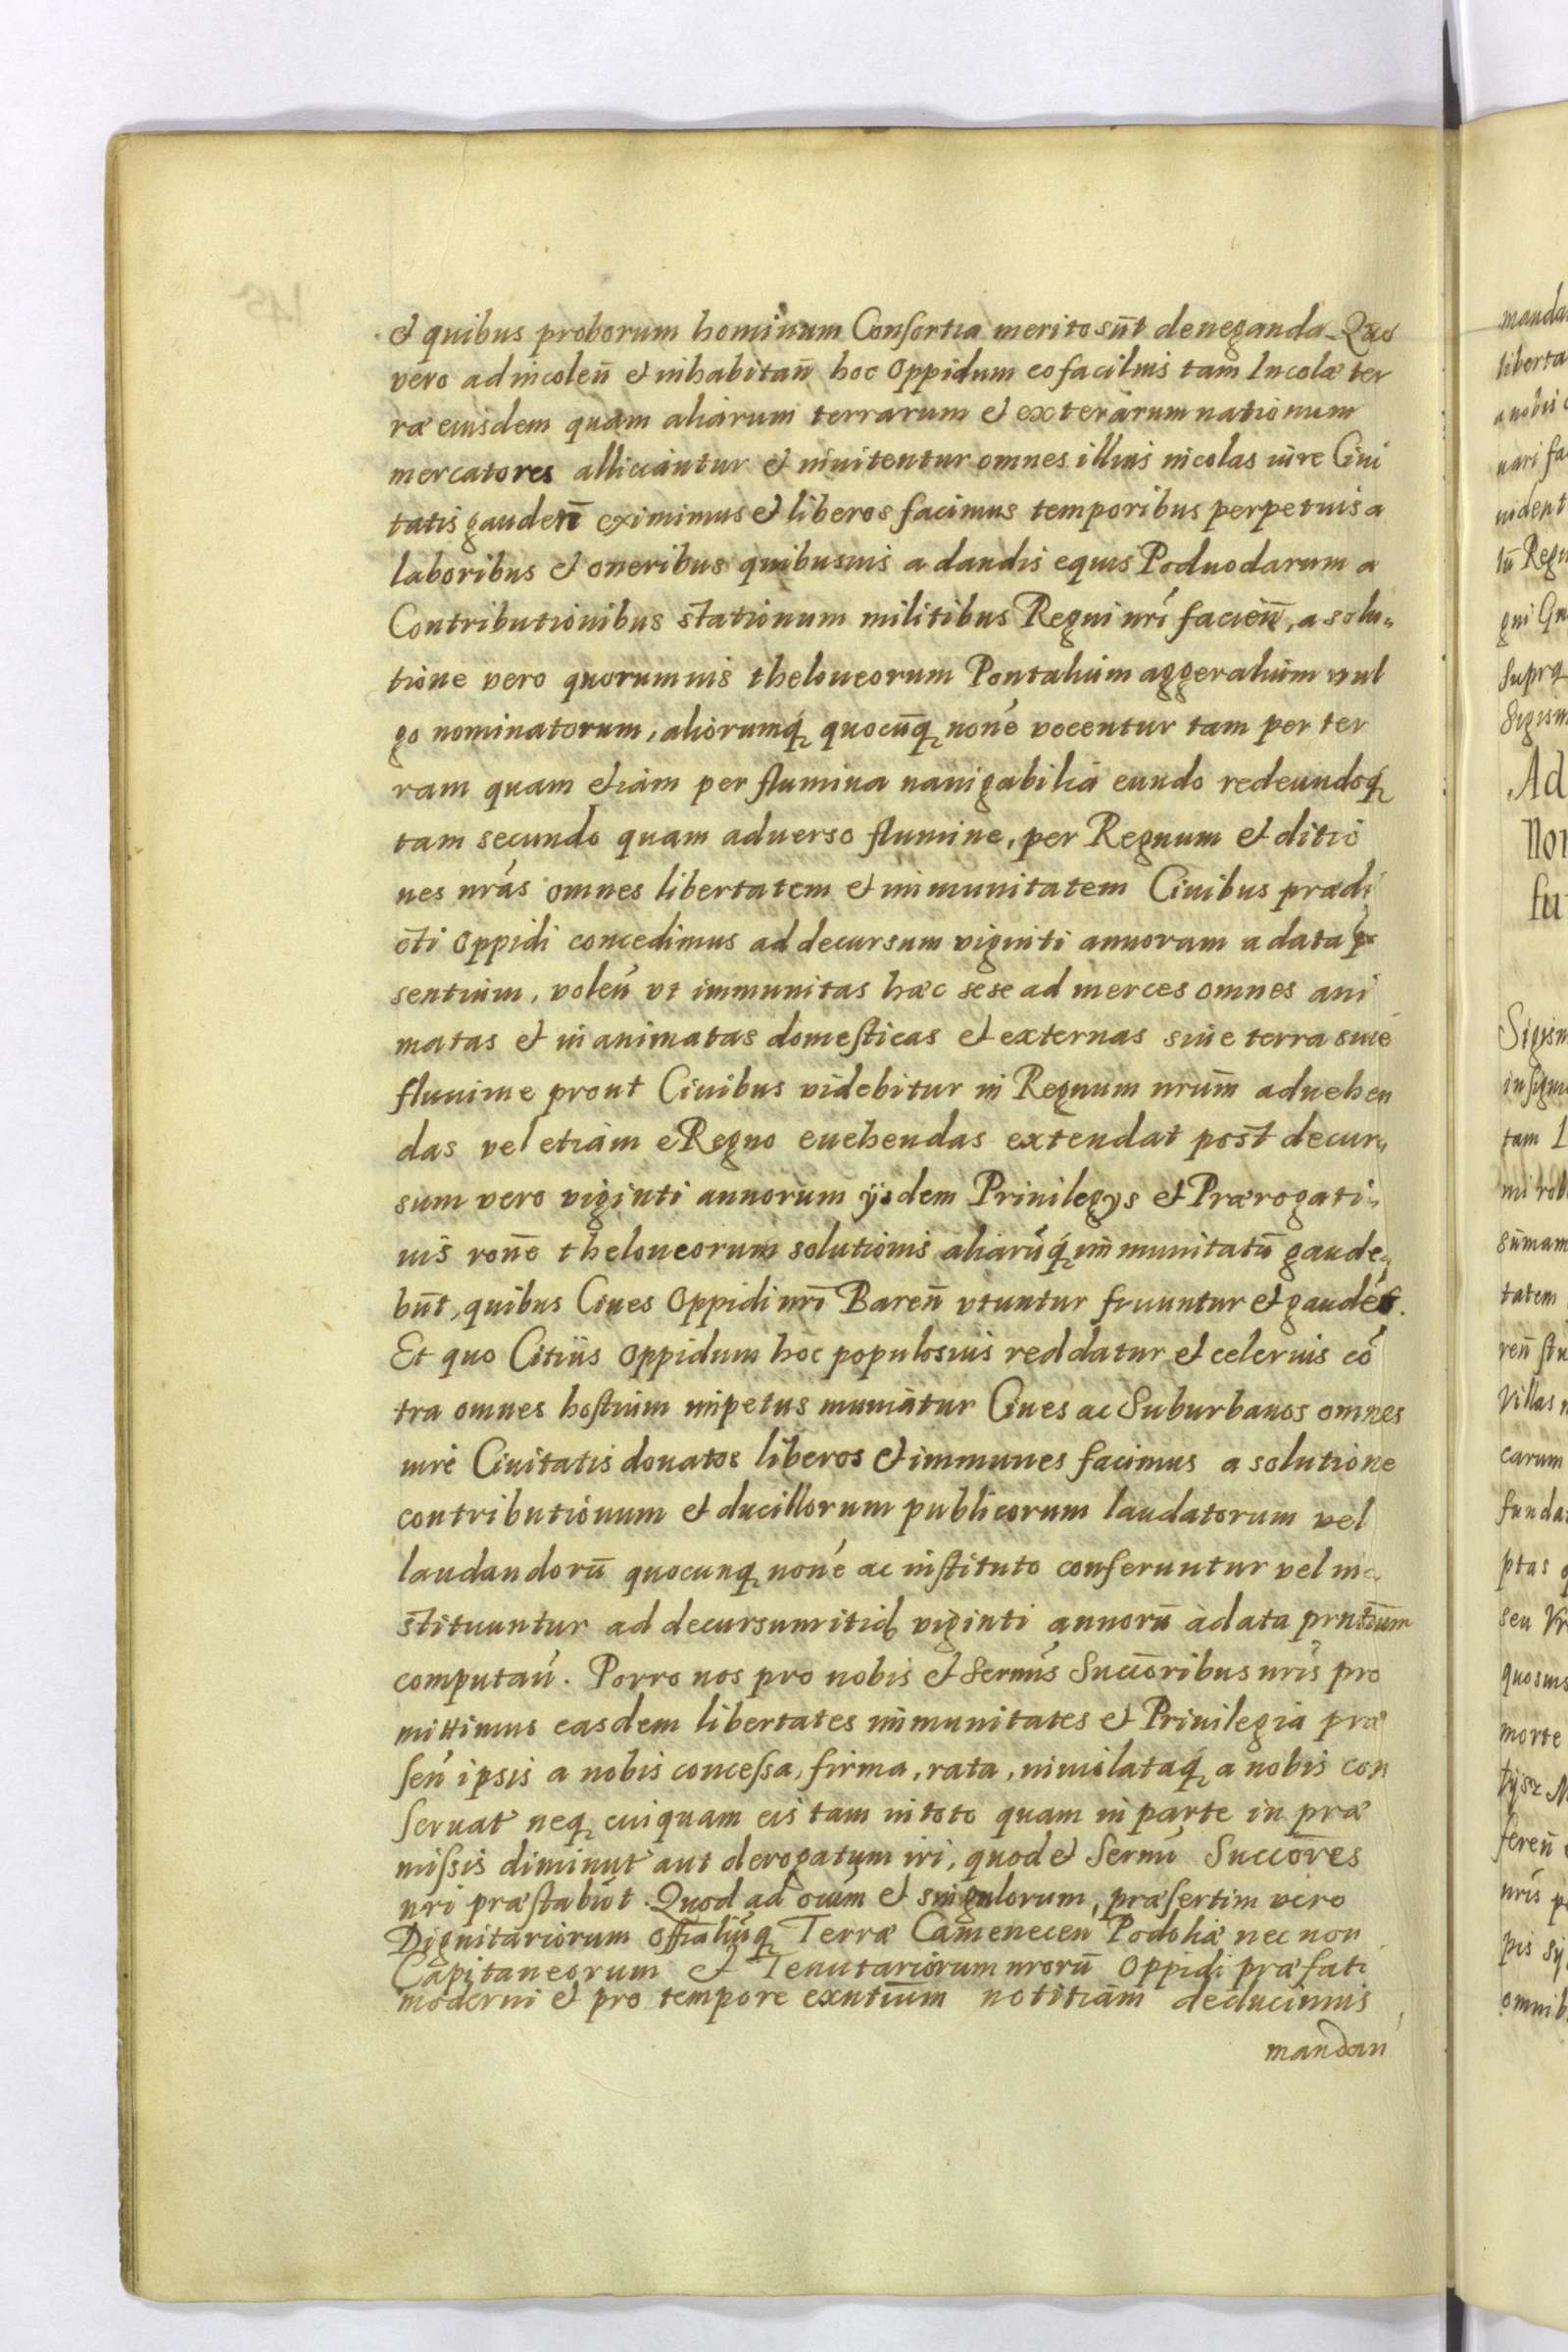 et quibus proborum hominum Consortia merito sūt deneganda. Quo
vero ad incoleñ et inhabitañ hoc oppidum eo facilius tam Incolæ ter
ræ eiusdem quam aliarum terrarum et exterarum nationum
mercatores alliciantur et inuitentur omnes illius incolas iure Ciui
tatis gaudeñ eximimus et liberos facimus temporibus perpetuis a
laboribus et oneribus quibusuis a dandis equis Poduodarum a
Contributionibus stationum militibus Regni nrī facień, a solu„
tione vero quorumuis theloneorum Pontalium aggeralium vul
go nominatorum, aliorumq́ quocūq noñe vocentur tam per ter
ram quam etiam per flumina nauigabilia eundo redeundoq́
tam secundo quam aduerso flumine, per Regnum et ditio
nes nras omnes libertatem et immunitatem Ciuibus prædi
cti oppidi concedimus ad decursum viginti annorum a data p̄
sentium, voleń vt immunitas hæc sese ad merces omnes ani
matas et inanimatas domesticas et externas siue terra siue
flumine prout Ciuibus videbitur in Regnum nrum aduehen
das vel etiam e Regno euehendas extendat post decur„
sum vero viginti annorum ijsdem Priuilegys et Prærogati„
uis rone theloneorum solutionis aliarūq́ immunitatū gaude„
būt, quibus Ciues oppidi nrī Bareñ vtuntur fruuntur et gaudēt.
Et quo Citius oppidum hoc populosius reddatur et celerius cō
tra omnes hostium impetus muniatur Ciues ac Suburbanos omnes
iure Ciuitatis donatos liberos et immunes facimus a solutione
contributionum et ducillorum publicorum laudatorum vel
laudandorū quocunq noñe ac instituto conferuntur vel in„
stituuntur ad decursum itidē viginti annorū a data prntium
computań. Porro nos pro nobis et Sermis Succoribus nris pro
mittimus easdem libertates immunitates et Priuilegia præ
seń ipsis a nobis concessa, firma, rata, inuiolataq́ a nobis con
seruat neq cuiquam eis tam in toto quam in parte in præ
missis diminut aut derogatum iri, quod et Sermi Succores
nri præstabūt. Quod ad oium et singulorum, præsertim vero
Dignitariorum offialiūq Terræ Camenecen Podoliæ nec non
Capitaneorum et Tenutariorum nrorū oppidi præfati
moderni et pro tempore exntium notitiam deducimus
mandań
mandan
liberta
a nobis
uari fa
uident
tū Regn
gni
supra
Sigism
Ad
Non
fu
Sigism
insign
tam
sumam
tatem
ren stu
Villas
carum
funda
ptas
seu
quosuis
morte
feren
nris
pis
omnib